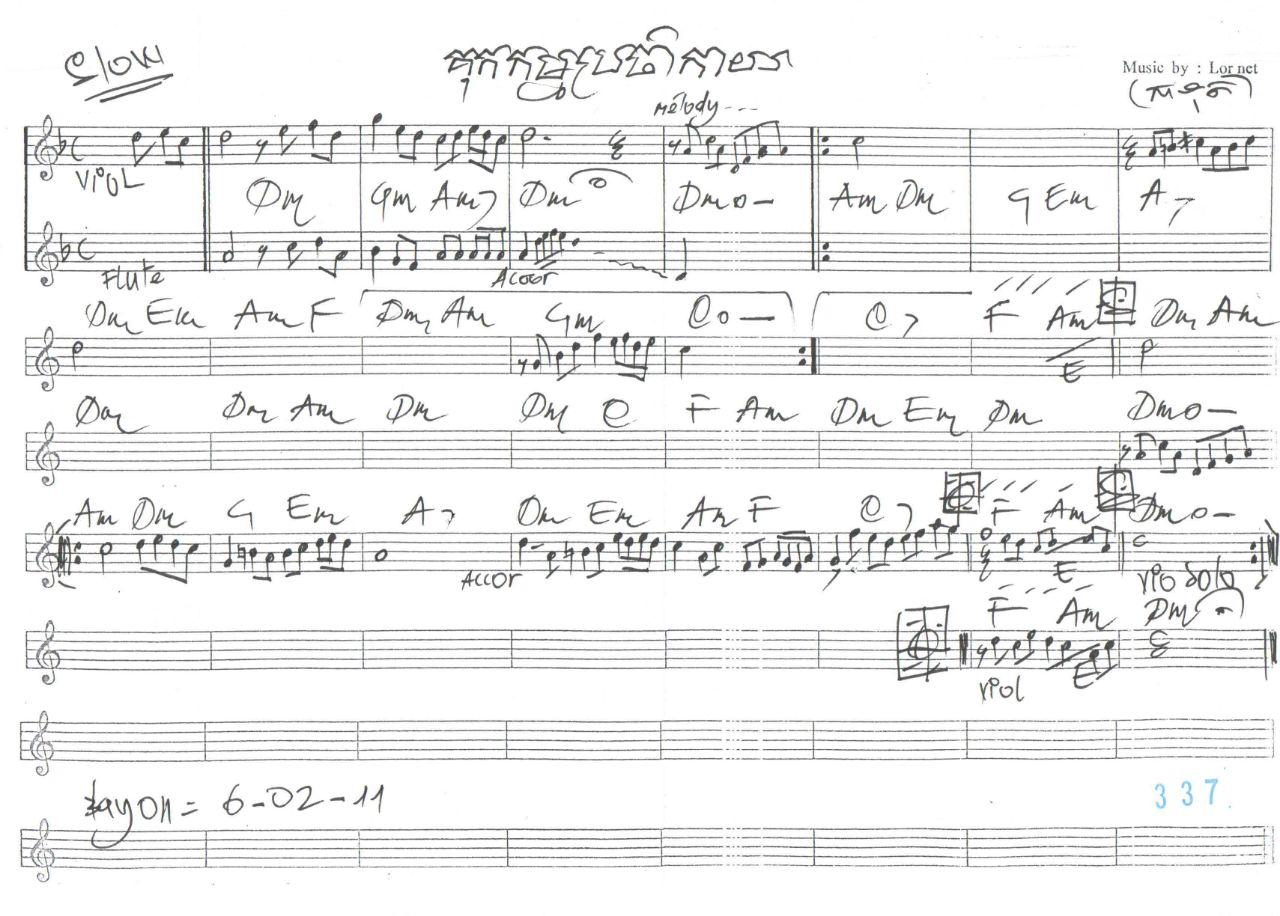 Slow
Music by : Lor net
mélody ---
VIOL
Dm Gm Am7 Dm Dmo- Am Dm G Em A7
FLUte
Accor
Dm Em Am F Dm Am Gm Co- C7 F Am Dm Am
E
Dm Dm Am Dm Dm C F Am Dm Em Dm Dmo-
Am Dm G Em A7 Dm Em Am F C7 F Am Dmo-
Accor
E
Vio Solo
F Am Dm
E
Viol
6-02-11
337.